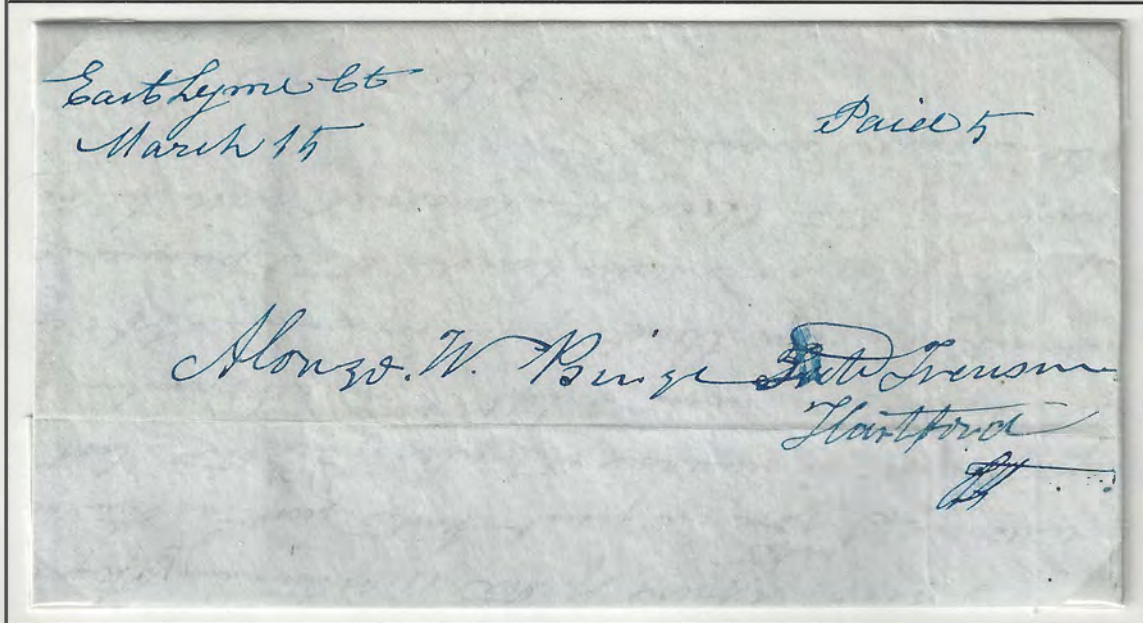 East Lyme Ct
March 15
Paid 5
Alonzo. W. Birge State Treasurer
Hartford
Ct